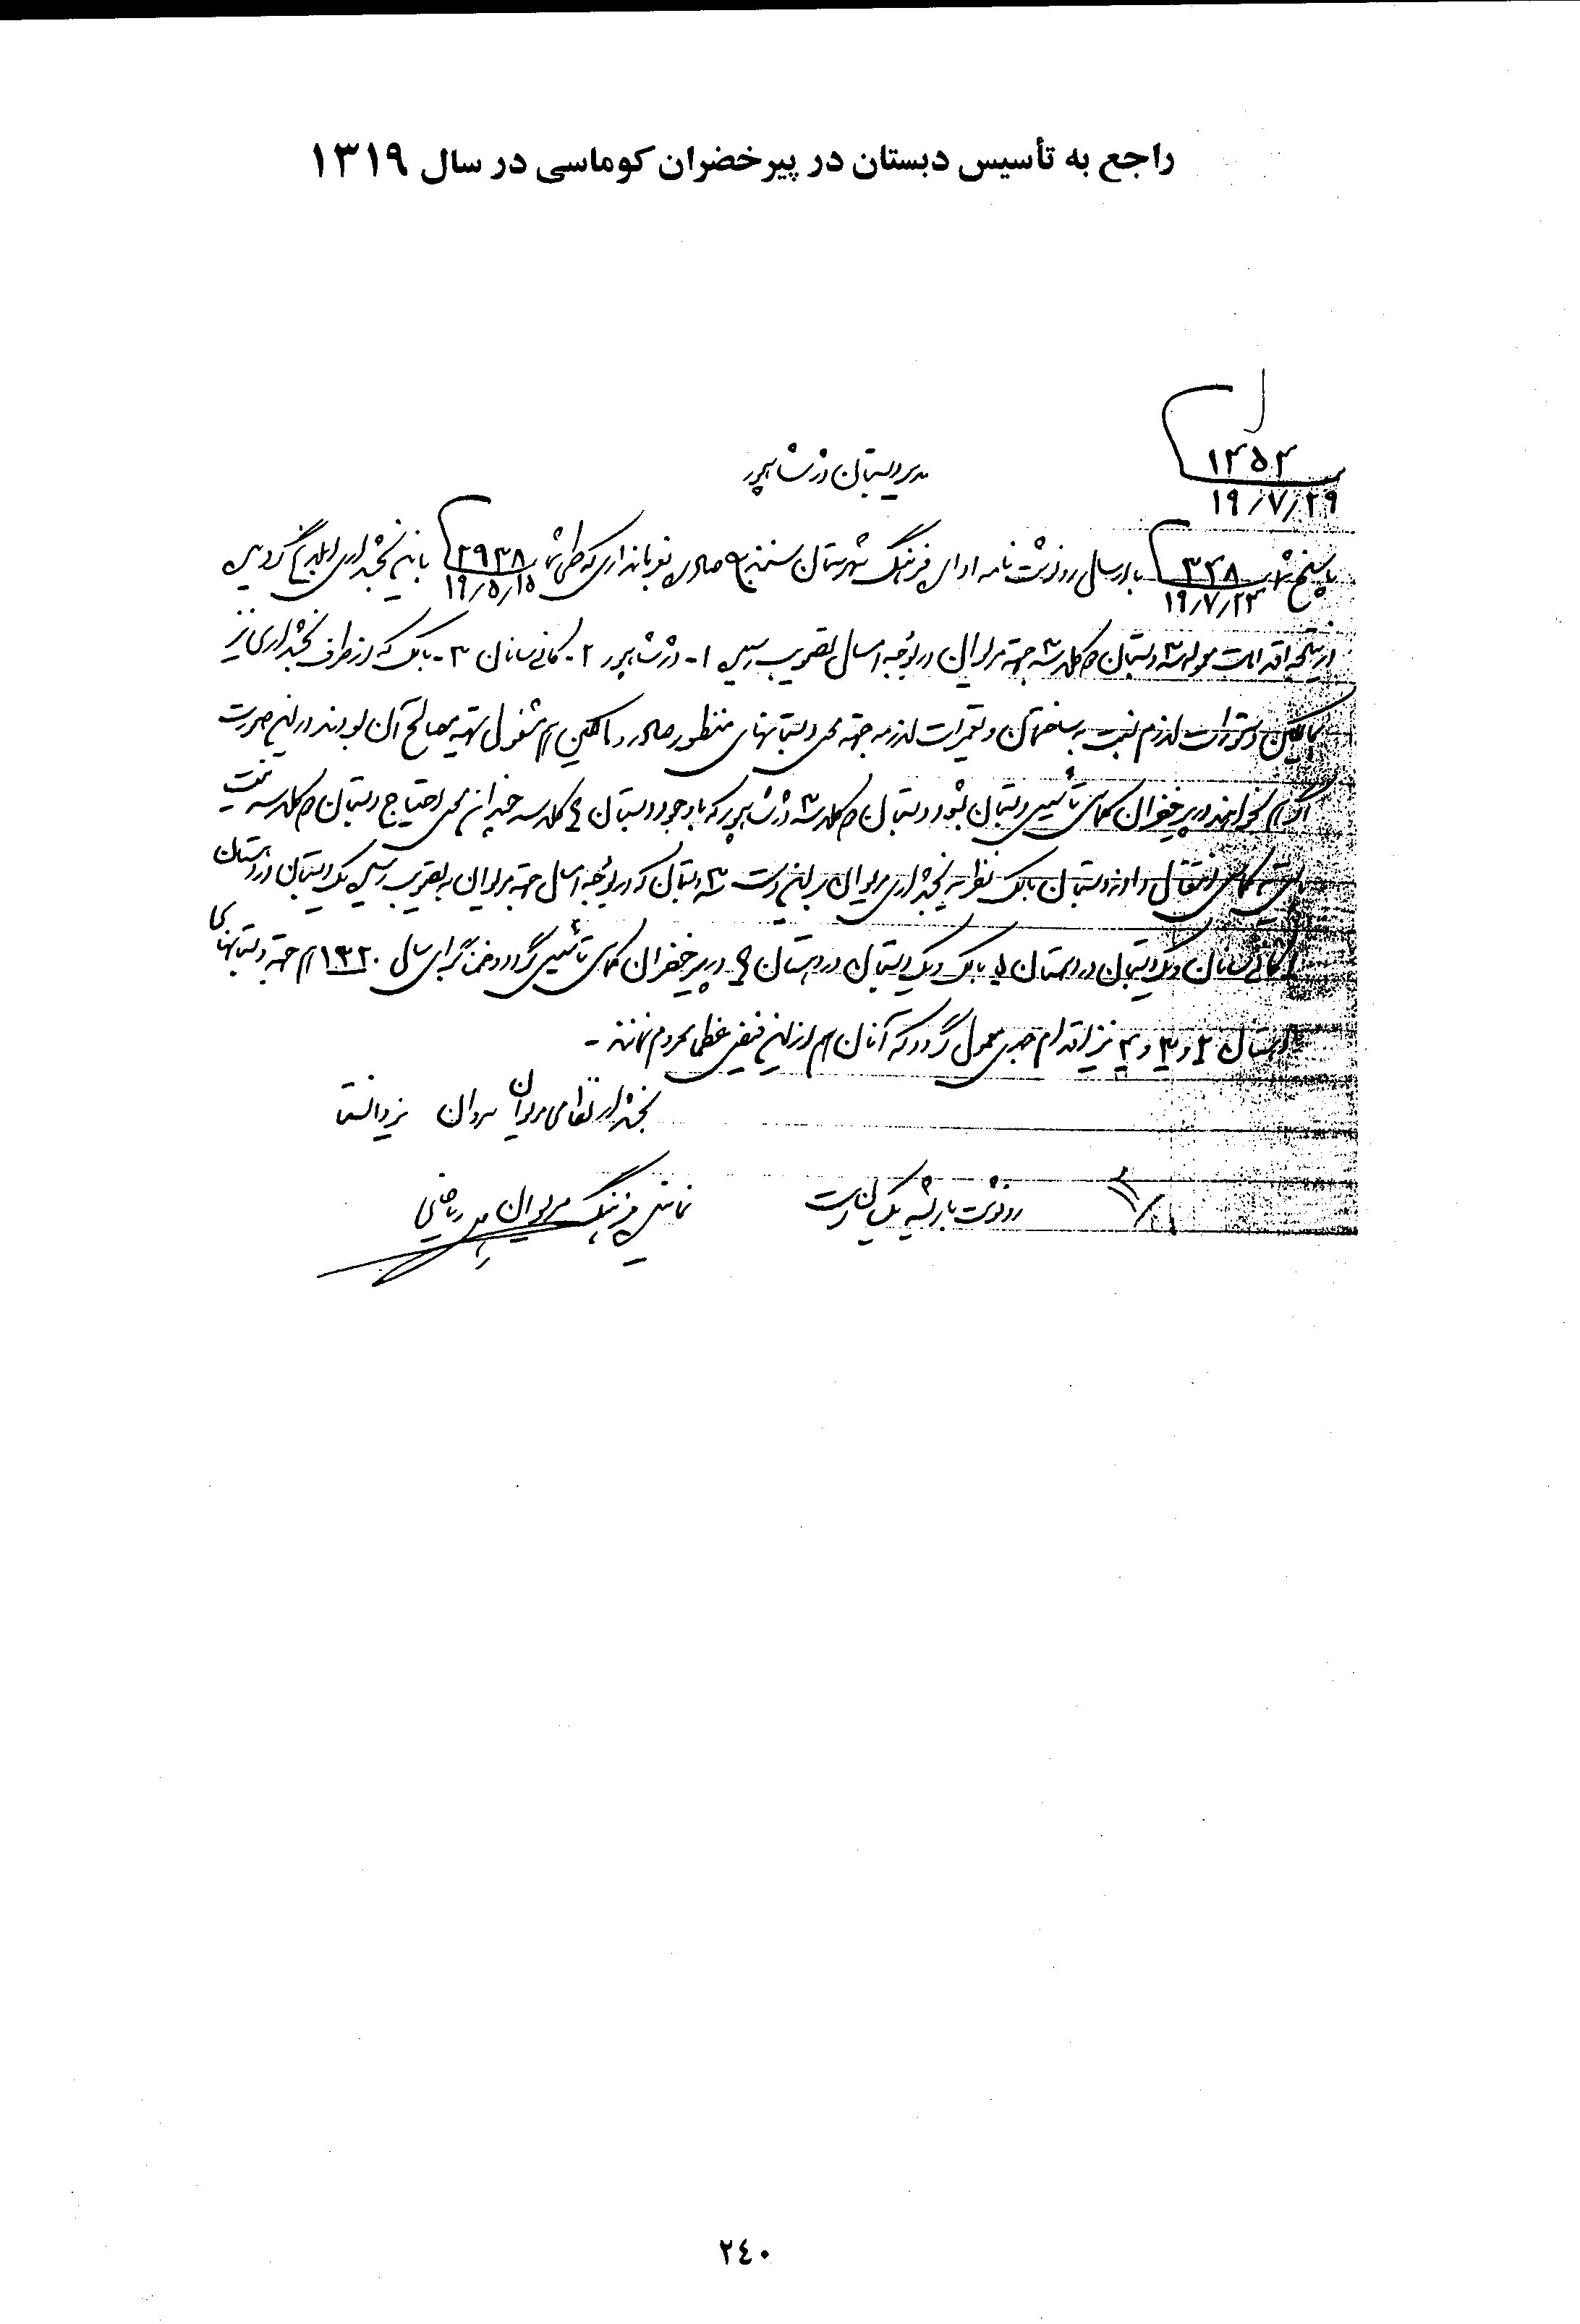 راجع به تأسیس دبستان در پیرخضران کوماسی در سال ۱۳۱۹
۱۲۵۲
۱۹/۷/۲۹
مدیر دبستان دژ شاهپور
پاسخ ۳۲۸ ۱۹/۷/۲۳ با ارسال رونوشت نامه اداره فرهنگ شهرستان سنندج صادره بفرمانداری که طی شماره ۲۹۳۸ ۱۹/۵/۱۵ باین بخشداری ابلاغ گردیده
در نتیجه اقدامات معموله ۳ دبستان کلاسه جهة مریوان در بودجه امسال تصویب رسیده ۱- دژ شاهپور ۲- کانی سانان ۳- بالک که از طرف بخشداری نیز
بمالکین دستورات لازم نسبت به ساختمان و تعمیرات لازمه جهة محل دبستانهای منظور صادر و مالکین هم مشغول تهیه مصالح آن بودند در این صورت
اگر هم بخواهند در پیرخضران کماسی تأسیس دبستان بشود دبستان کلاسه دژ شاهپور که با وجود دبستان ۴ کلاسه چندان محل احتیاج دبستان کلاسه نیست
کماسی انتقال داد نه دبستان بالک نظریه بخشداری مریوان بر این است ۳ دبستان که در بودجه امسال جهة مریوان به تصویب رسیده یک دبستان در دهستان
کانی سانان و یک دبستان در دهستان بالک و یک دبستان در دهستان در پیرخضران کماسی تأسیس گردد و ضمناً برای سال ۱۳۲۰ هم جهة دبستانهای
دهستان ۲ و ۳ و ۴ نیز اقدام جدی معمول گردد که آنان هم از این فیض عظما محروم نمانند -
بخشدار نظامی مریوان سروان یزدانستا
رونوشت بارشیو یکسان است
نماینده فرهنگ مریوان
۲٤۰